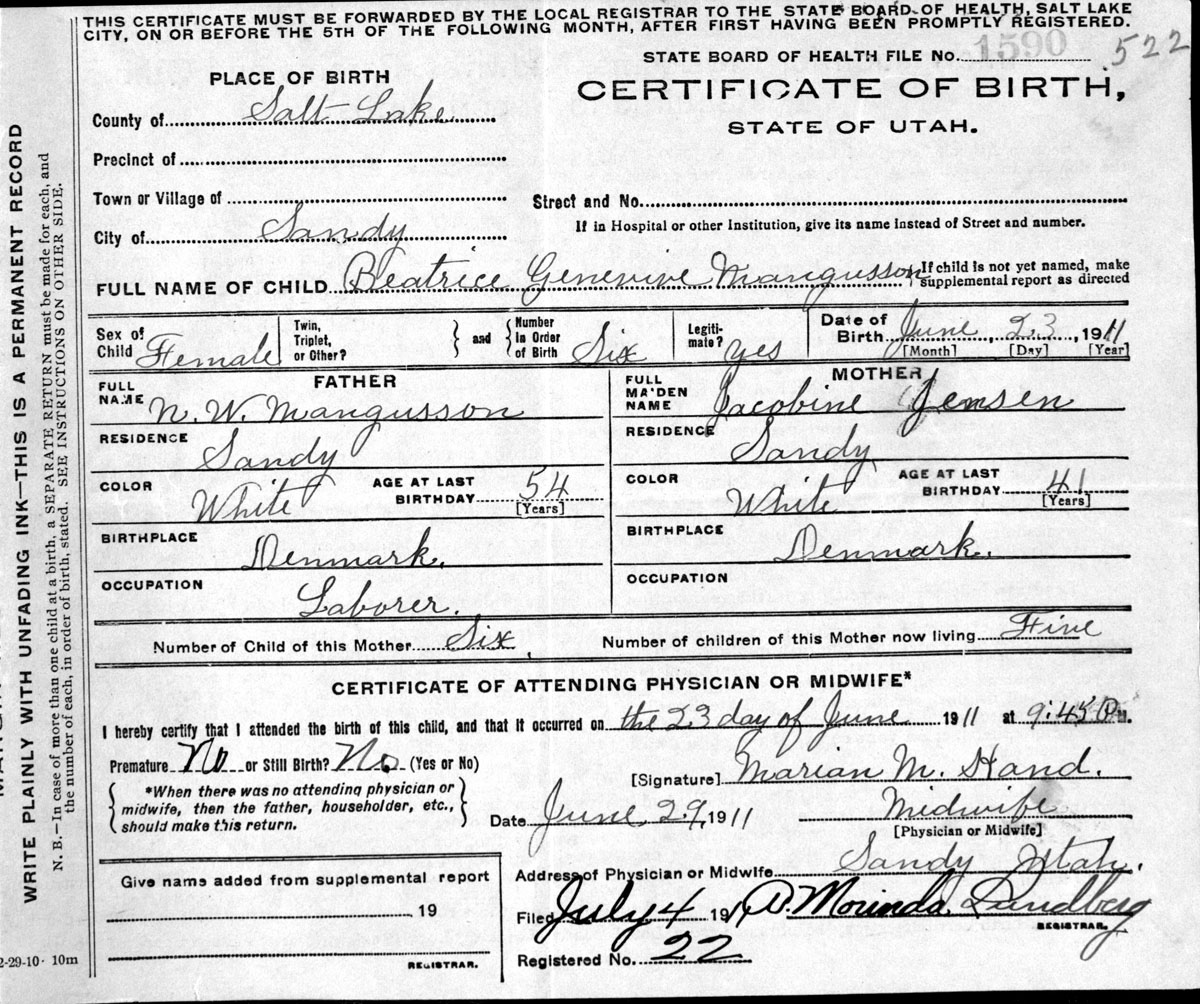 THIS CERTIFICATE MUST BE FORWARDED BY THE LOCAL REGISTRAR TO THE STATE BOARD OF HEALTH, SALT LAKE
CITY, ON OR BEFORE THE 5TH OF THE FOLLOWING MONTH, AFTER FIRST HAVING BEEN PROMPTLY REGISTERED.
STATE BOARD OF HEALTH FILE No. 1590 522
PLACE OF BIRTH
CERTIFICATE OF BIRTH,
STATE OF UTAH.
County of Salt Lake
Precinct of
Town or Village of
Street and No.
City of Sandy
If in Hospital or other Institution, give its name instead of Street and number.
FULL NAME OF CHILD Beatrice Genevive Mangusson { If child is not yet named, make
supplemental report as directed
Sex of Child Female
Twin, Triplet, or Other? } and { Number in Order of Birth Six
Legiti- mate? yes
Date of Birth June 23, 1911
[Month] [Day] [Year]
FATHER
MOTHER
FULL NAME N. W. Mangusson
FULL MAIDEN NAME Jacobine Jensen
RESIDENCE Sandy
RESIDENCE Sandy
COLOR White AGE AT LAST BIRTHDAY 54 [Years]
COLOR White AGE AT LAST BIRTHDAY 41 [Years]
BIRTHPLACE Denmark.
BIRTHPLACE Denmark.
OCCUPATION Laborer.
OCCUPATION
Number of Child of this Mother Six. Number of children of this Mother now living Five
CERTIFICATE OF ATTENDING PHYSICIAN OR MIDWIFE*
I hereby certify that I attended the birth of this child, and that it occurred on the 23 day of June 1911 at 9:45 P M.
Premature No or Still Birth? No. (Yes or No)
[Signature] Marian M. Hand.
*When there was no attending physician or
midwife, then the father, householder, etc.,
should make this return.
Date June 29, 1911 Midwife
[Physician or Midwife]
Address of Physician or Midwife Sandy Utah.
Give name added from supplemental report
19
REGISTRAR.
Filed July 4 1911 Morinda Sandberg
REGISTRAR.
Registered No. 22
2-29-10 10m
WRITE PLAINLY WITH UNFADING INK—THIS IS A PERMANENT RECORD
N. B.—In case of more than one child at a birth, a SEPARATE RETURN must be made for each, and
the number of each, in order of birth, stated. SEE INSTRUCTIONS ON OTHER SIDE.